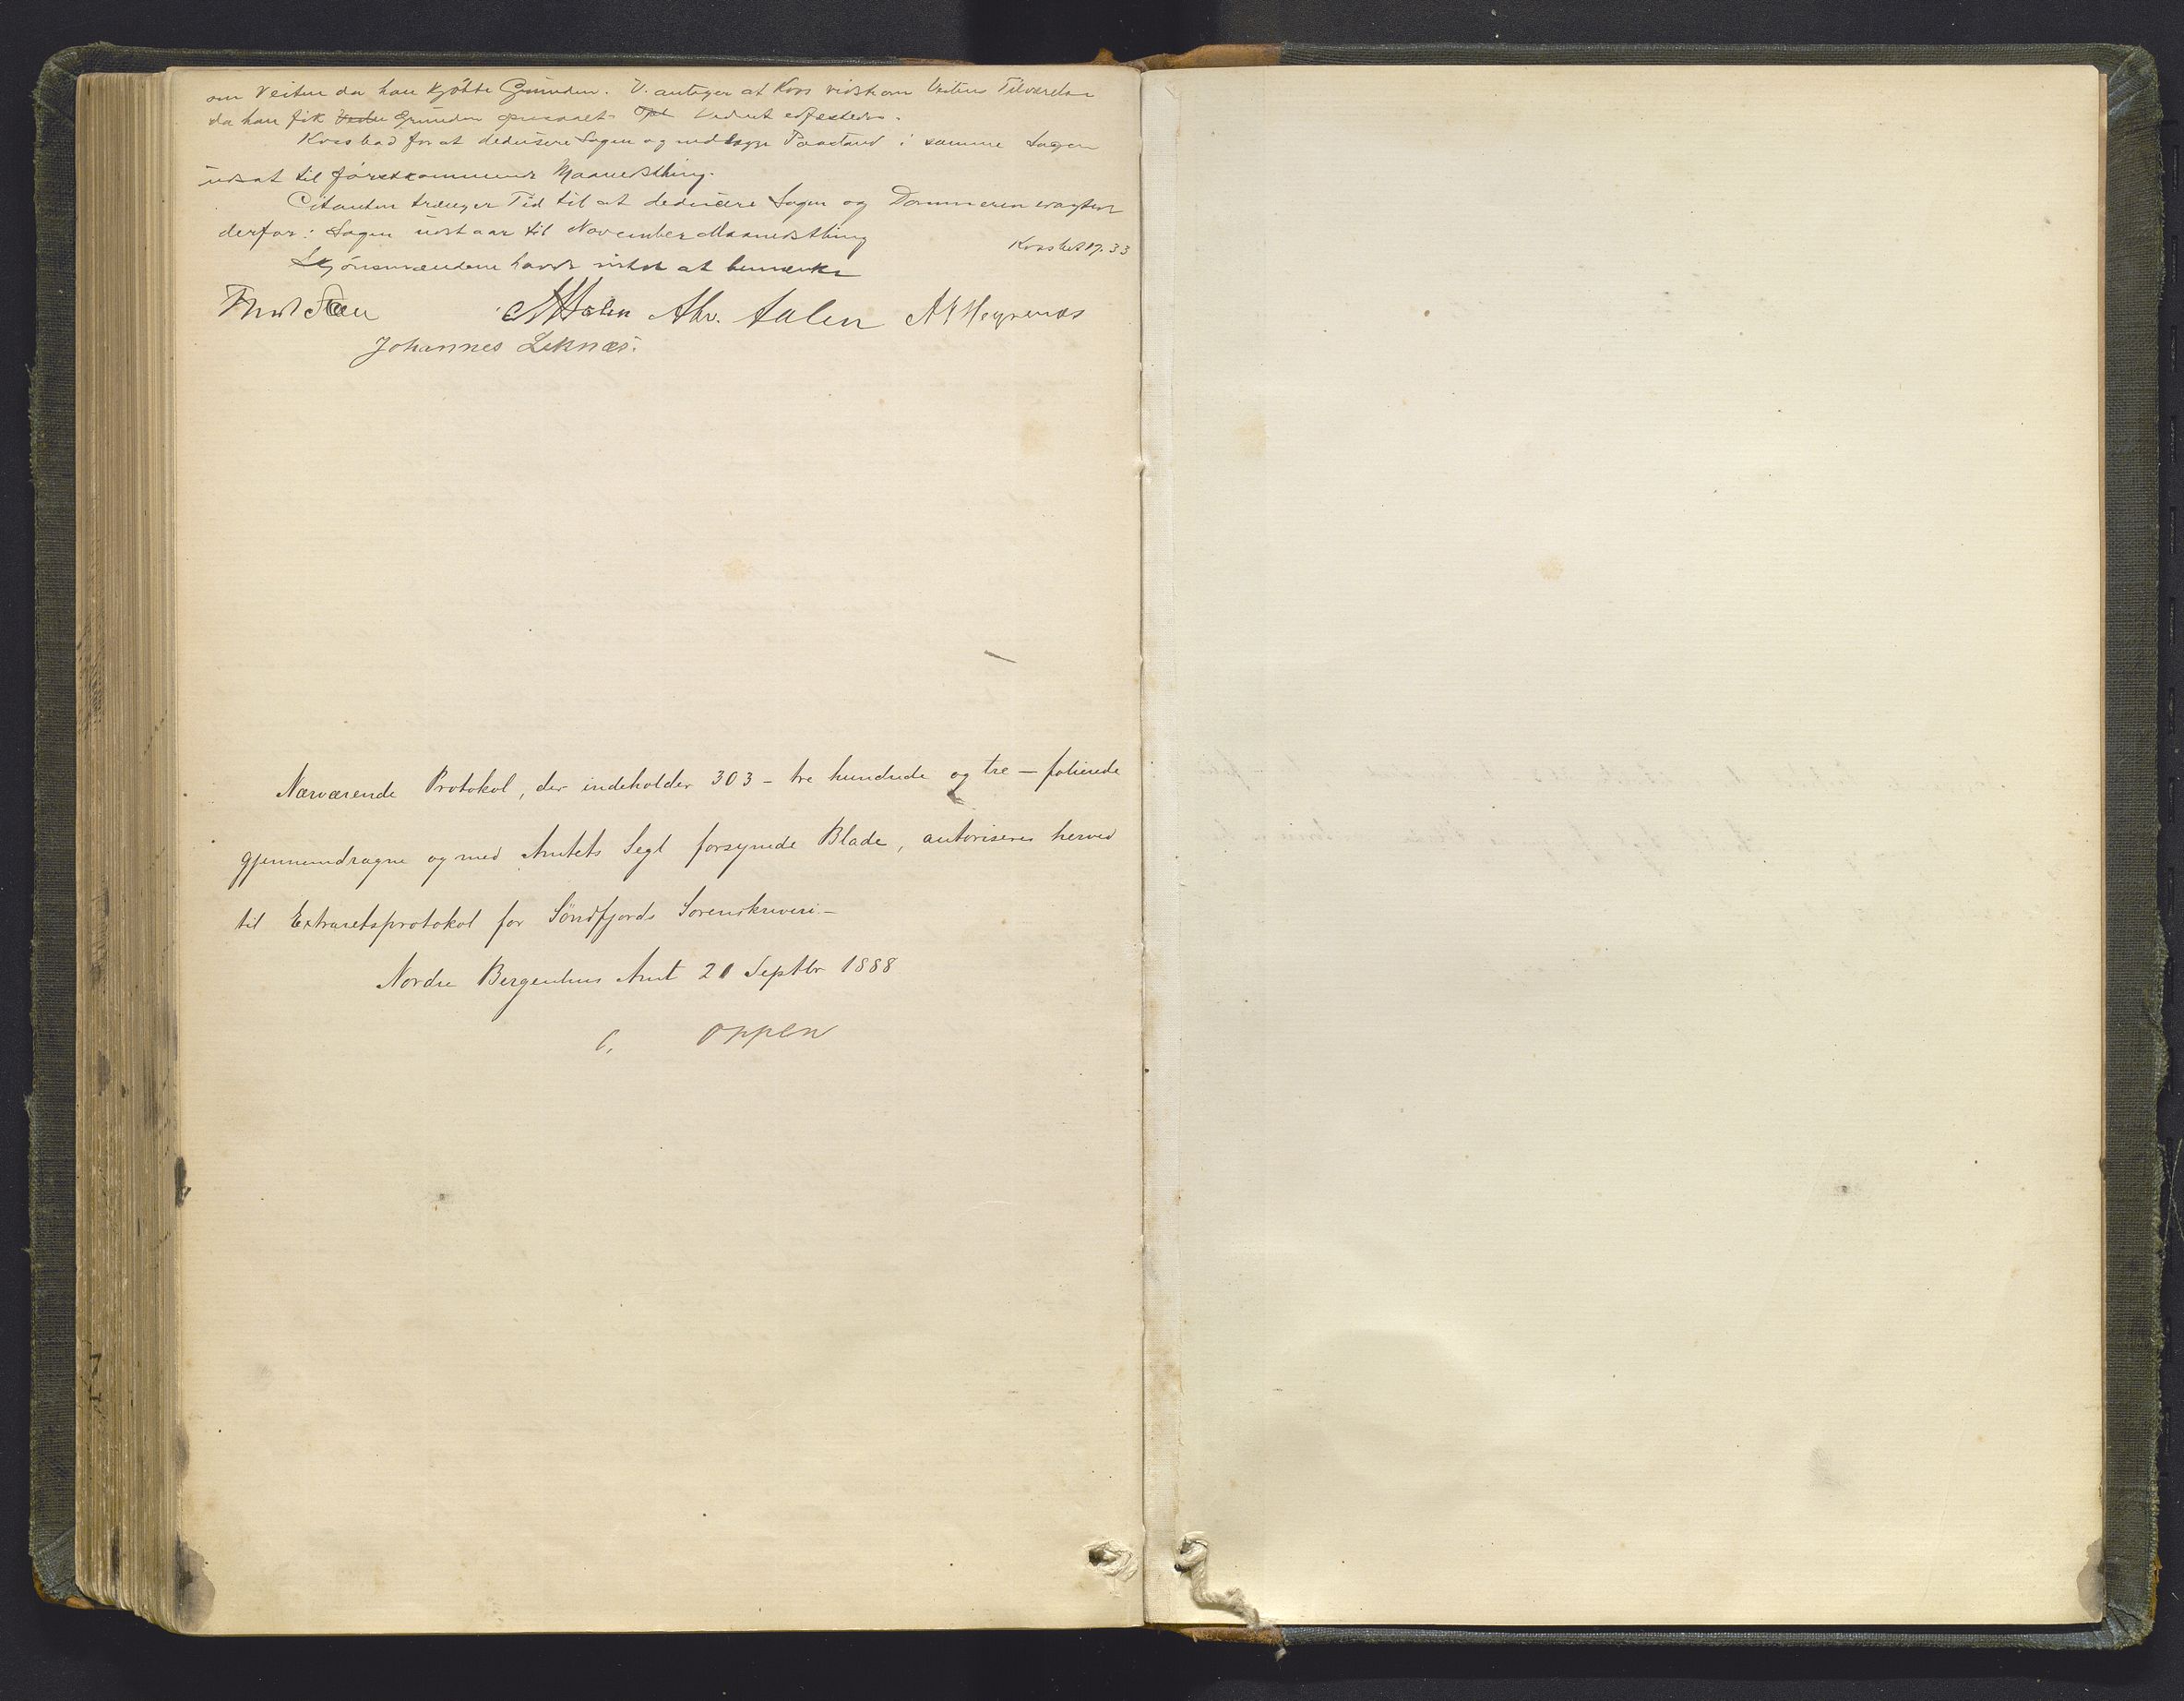 om Veiten da han kjøbte Grunden. V. antager at Kors vidste om Veitens Tilværelse
da han fik Veite Grunden opmaalt. Opl Vidnet edfæstedes.
Kors bad for at deducere Sagen og nedlægge Paastand i samme Sagen
udsat til førstkommende Maanedsthing.
Citanten trænger Tid til at deducere Sagen og Dommeren eragtede
derfor: Sagen udstaar til November Maanedsthing
Skjønsmændene havde intet at bemærke
Aalen Ahv. Aalen
Johannes Leknæs.
Nærværende Protokol, der indeholder 303 – tre hundrede og tre – folierede
gjennemdragne og med Amtets Segl forsynede Blade, autoriseres herved
til Extraretsprotokol for Søndfjords Sorenskriveri –
Nordre Bergenhus Amt 21 Septbr 1888
Oppen